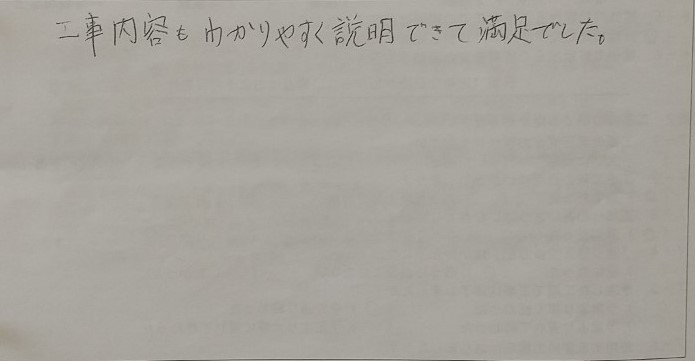 工事内容もわかりやすく説明できて満足でした。